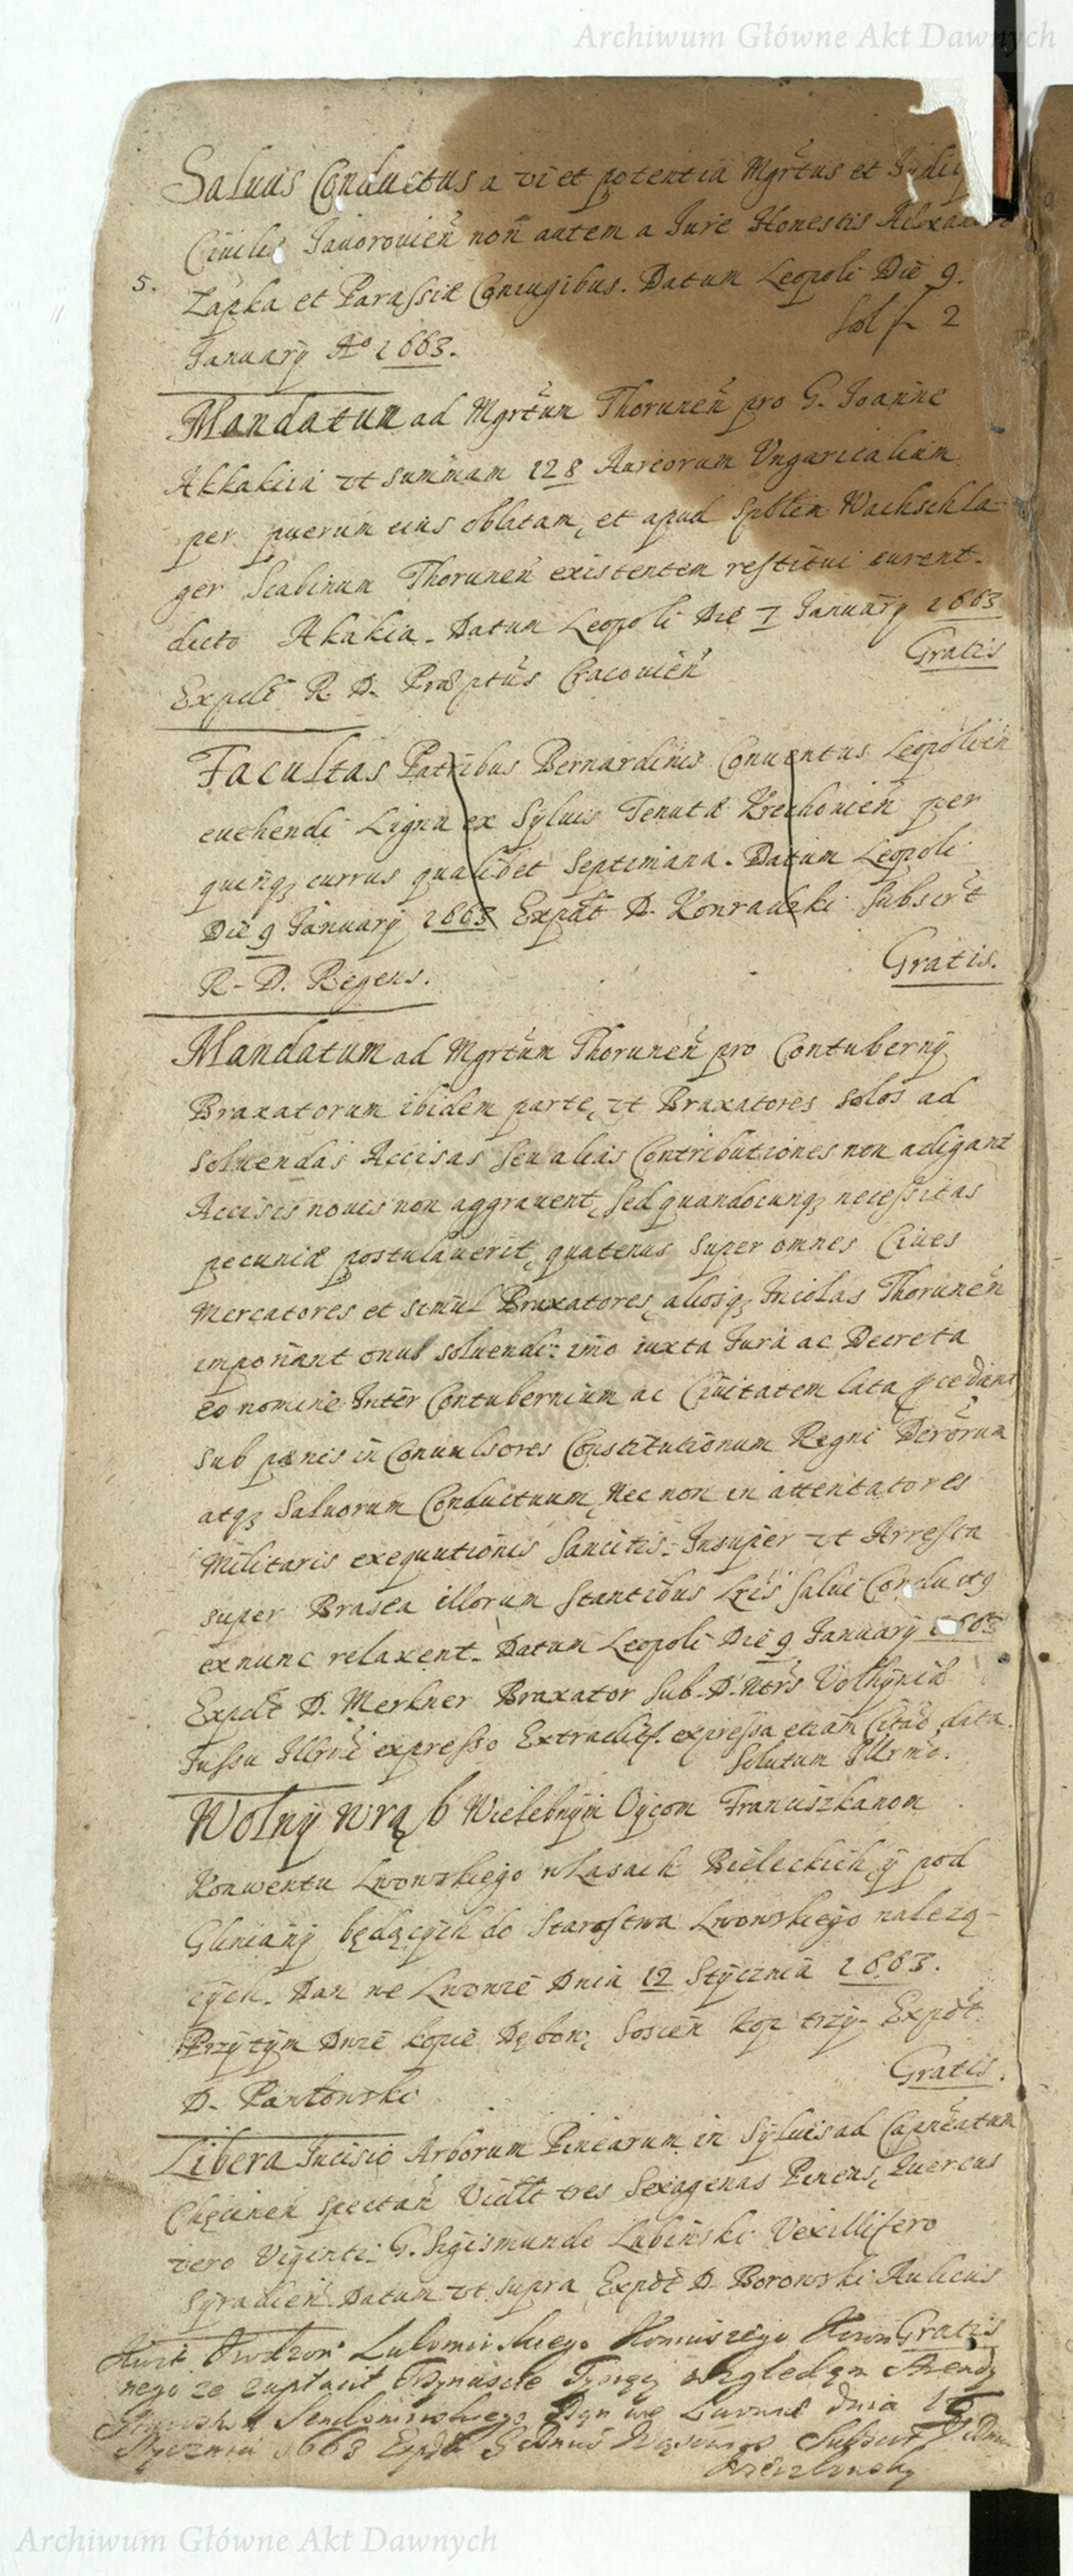 Archiwum Główne Akt Dawnych
Saluus Conductus a vi et potentia Mgrtus et
Ciuilis Jauorouien̄ non̄ autem a Jure Honestis Alexandro
5.
Zapka et Parassiæ Coniugibus. Datum Leopoli Die 9.
January Aº 1663.
Sol f 2
Mandatum ad Mgrtum Thorunen̄ pro G. Joanne
Akkakia vt summam 128 Aureorum Ungaricalium
per puerum eius oblatam, et apud Spblem Wachschla-
ger Scabinum Thorunen̄ existentem restitui curent
dicto Akakia. Datum Leopoli Die 7 January 1663
Gratis
Expdt R. D. Præptus Cracouien̄
Facultas Patribus Bernardinis Conuentus Leopolien̄
euehendi Ligna ex Syluis Tenutæ Krechouien̄ per
quinqz currus qualibet Septimana. Datum Leopoli
Die 9 January 1663 Expdt D. Konradzki Subscrt
R. D. Regens.
Gratis.
Mandatum ad Mgrtum Thorunen̄ pro Contuberny
Braxatorum ibidem parte, vt Braxatores solos ad
soluendas Accisas seu alias Contributiones non adigant
Accisis nouis non aggrauent, sed quandocunqz necessitas
pecuniæ postulauerit, quatenus super omnes Ciues
Mercatores et simul Braxatores, aliosqz Incolas Thorunen̄
imponant onus soluendi: imo iuxta Jura ac Decreta
eo nomine Inter Contubernium ac Ciuitatem lata
sub pænis in Conuulsores Constitutionum Regni Dcrorum
atqz Saluorum Conductuum, Nec non in attentatores
Militaris exequutionis sancitis. Insuper vt Arresta
super Brasea illorum stantibus Lris Salui Conductq
exnunc relaxent. Datum Leopoli Die 9 January 1663
Expdt D. Merkner Braxator Sub. D. Ntrs Volhyniæ
Jussu Illrmi expresso Extradit. expressa etiam data.
Solutum Illrmo.
Wolny Wrąb Wielebnym Oycom Franciszkanom
Konwentu Lwowskiego w Lasach Bieleckich y pod
Gliniany będących do Starostwa Lwowskiego nalezą-
cych. Dan we Lwowie Dnia 12 Stycznia 1663.
Przytym Dwie kopie Dębow, Sosien kop trzy. Expdt
Gratis.
D. Pawłowski
Libera Incisio Arborum Pinearum in Syluis ad Capneatum
Chęcinen̄ spectan̄ Vidlt tres Sexagenas Pineas, Quercus
vero Viginti. G. Sigismundo Lubinski Vexillifero
Syradien̄. Datum vt supra Expdt D. Borowski Aulicus
Gratis
Kwit Lubomirskiego Koniuszego Koron
nego ze zapłacił Tysięcy względem Arendy
Sendomirskiego Dan we Lwowie dnia 15
Stycznia 1663 Expdt Subscrt
Archiwum Główne Akt Dawnych